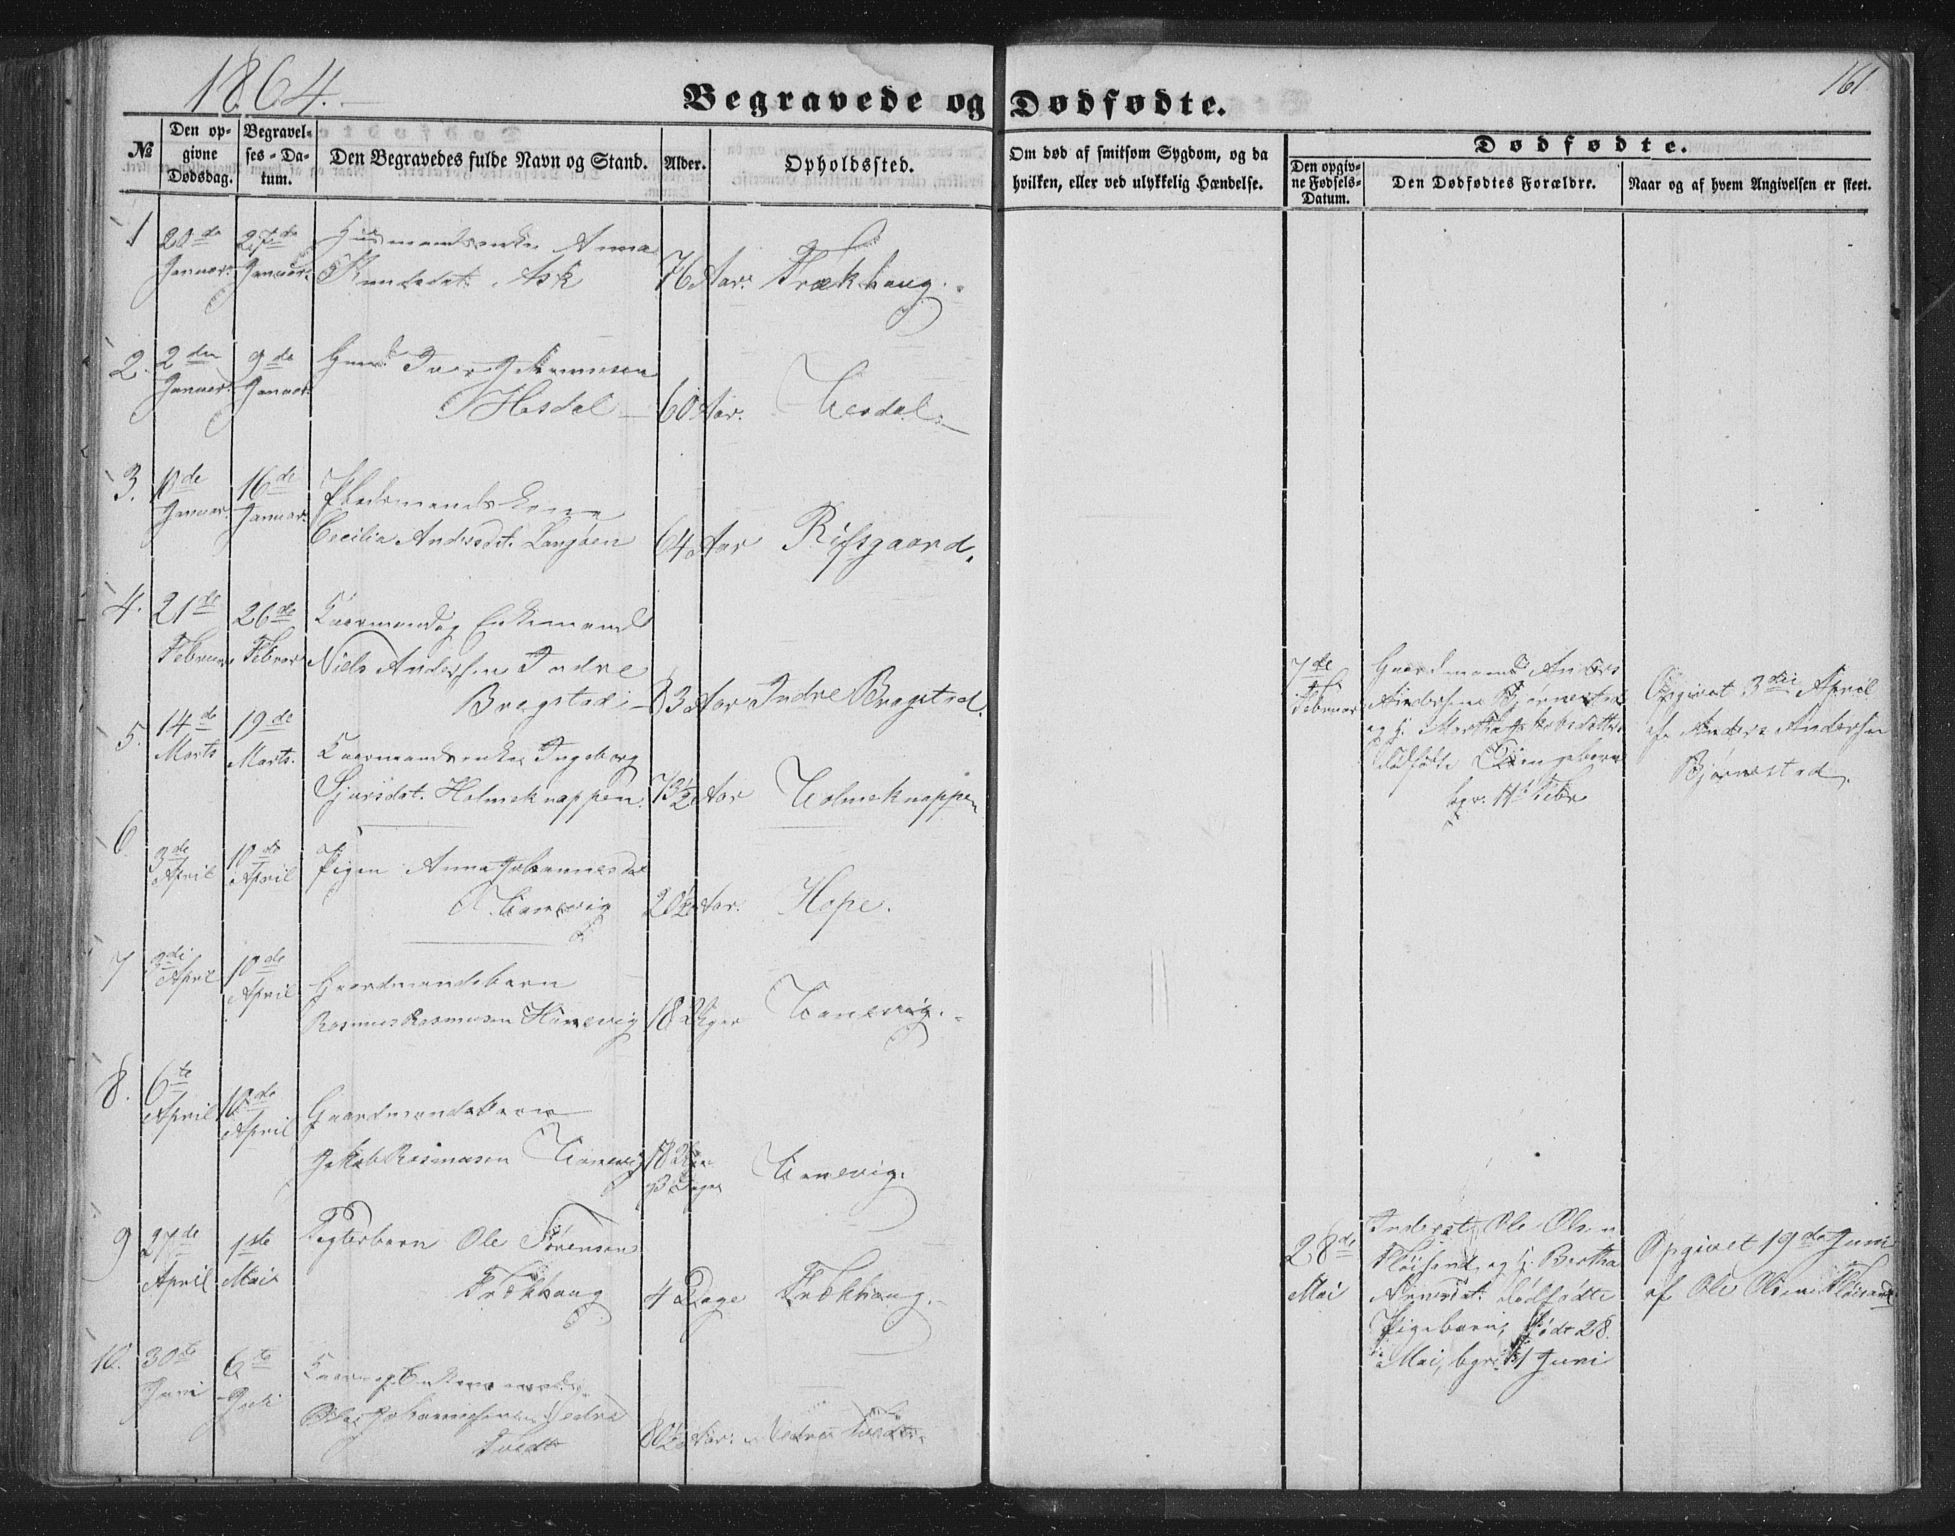 1864.
161
Begravede og Dødfødte.
№
Den opgivne Dødsdag.
Begravelses-Datum.
Den Begravedes fulde Navn og Stand.
Alder.
Opholdssted.
Om død af smitsom Sygdom, og da hvilken, eller ved ulykkelig Hændelse.
Dødfødte.
Den opgivne Fødsels-Datum.
Den Dødfødtes Forældre.
Naar og af hvem Angivelsen er skeet.
1 20de 27de Huusmandsenke Anna
Januar. Januar. Knudsdat. Ask 76 Aar. Trækhaug.
2. 2den 9de Iver
Januar. Januar. Hesdal 60 Aar. Hesdal.
3. 10de 16de Pladsmandskone
Januar. Januar. Cecilia Andersdt. Langøen 64 Aar Rifsgaard.
4. 21de 26de Kaarmand og Enkemand
Februar Februar Niels Andersen Indre
Bragstad 83 Aar Indre Bragstad.
5. 14de 19de
Marts Marts. Kaarmandsenke Ingeborg
Sjursdat. Holmeknappen. 73½ Aar Holmeknappen
6. 3de 10de
April April Pigen Anna Johannesdat
Hanevig 20½ Aar. Hope.
7 3die 10de
April April Gaardmandsbarn
Rasmus Rasmusen Hanevig 18 Uger Hanevig.
8. 6te 10de
April April Gaardmandsbarn
Jakob Rasmusen Hanevig 18 Uger
3 Dage Hanevig.
9 27de 1ste Pagterbarn Ole Sørensen
April Mai Trækhaug 4 Dage Trækhaug.
10. 30te 6te Kaar og Enkemand
Juni Juli Johannesen Nedre
Tvedt 80½ Aar. Nedre Tvedt.
7de Februar
Gaardmand Anders
Andersen Bjørnestad
og H. Martha Jakobsdatters
dødfødte Drengebarn
bgr. 14 Febr
Opgivet 3die April
af Anders Andersen
Bjørnestad.
28de Mai
Inderst Ole Olsen
Fløisand og H. Bertha
dødfødte
Pigebarn, født 28
Mai, bgr. Juni
Opgivet 19de Juni
af Ole Olsen Fløisand